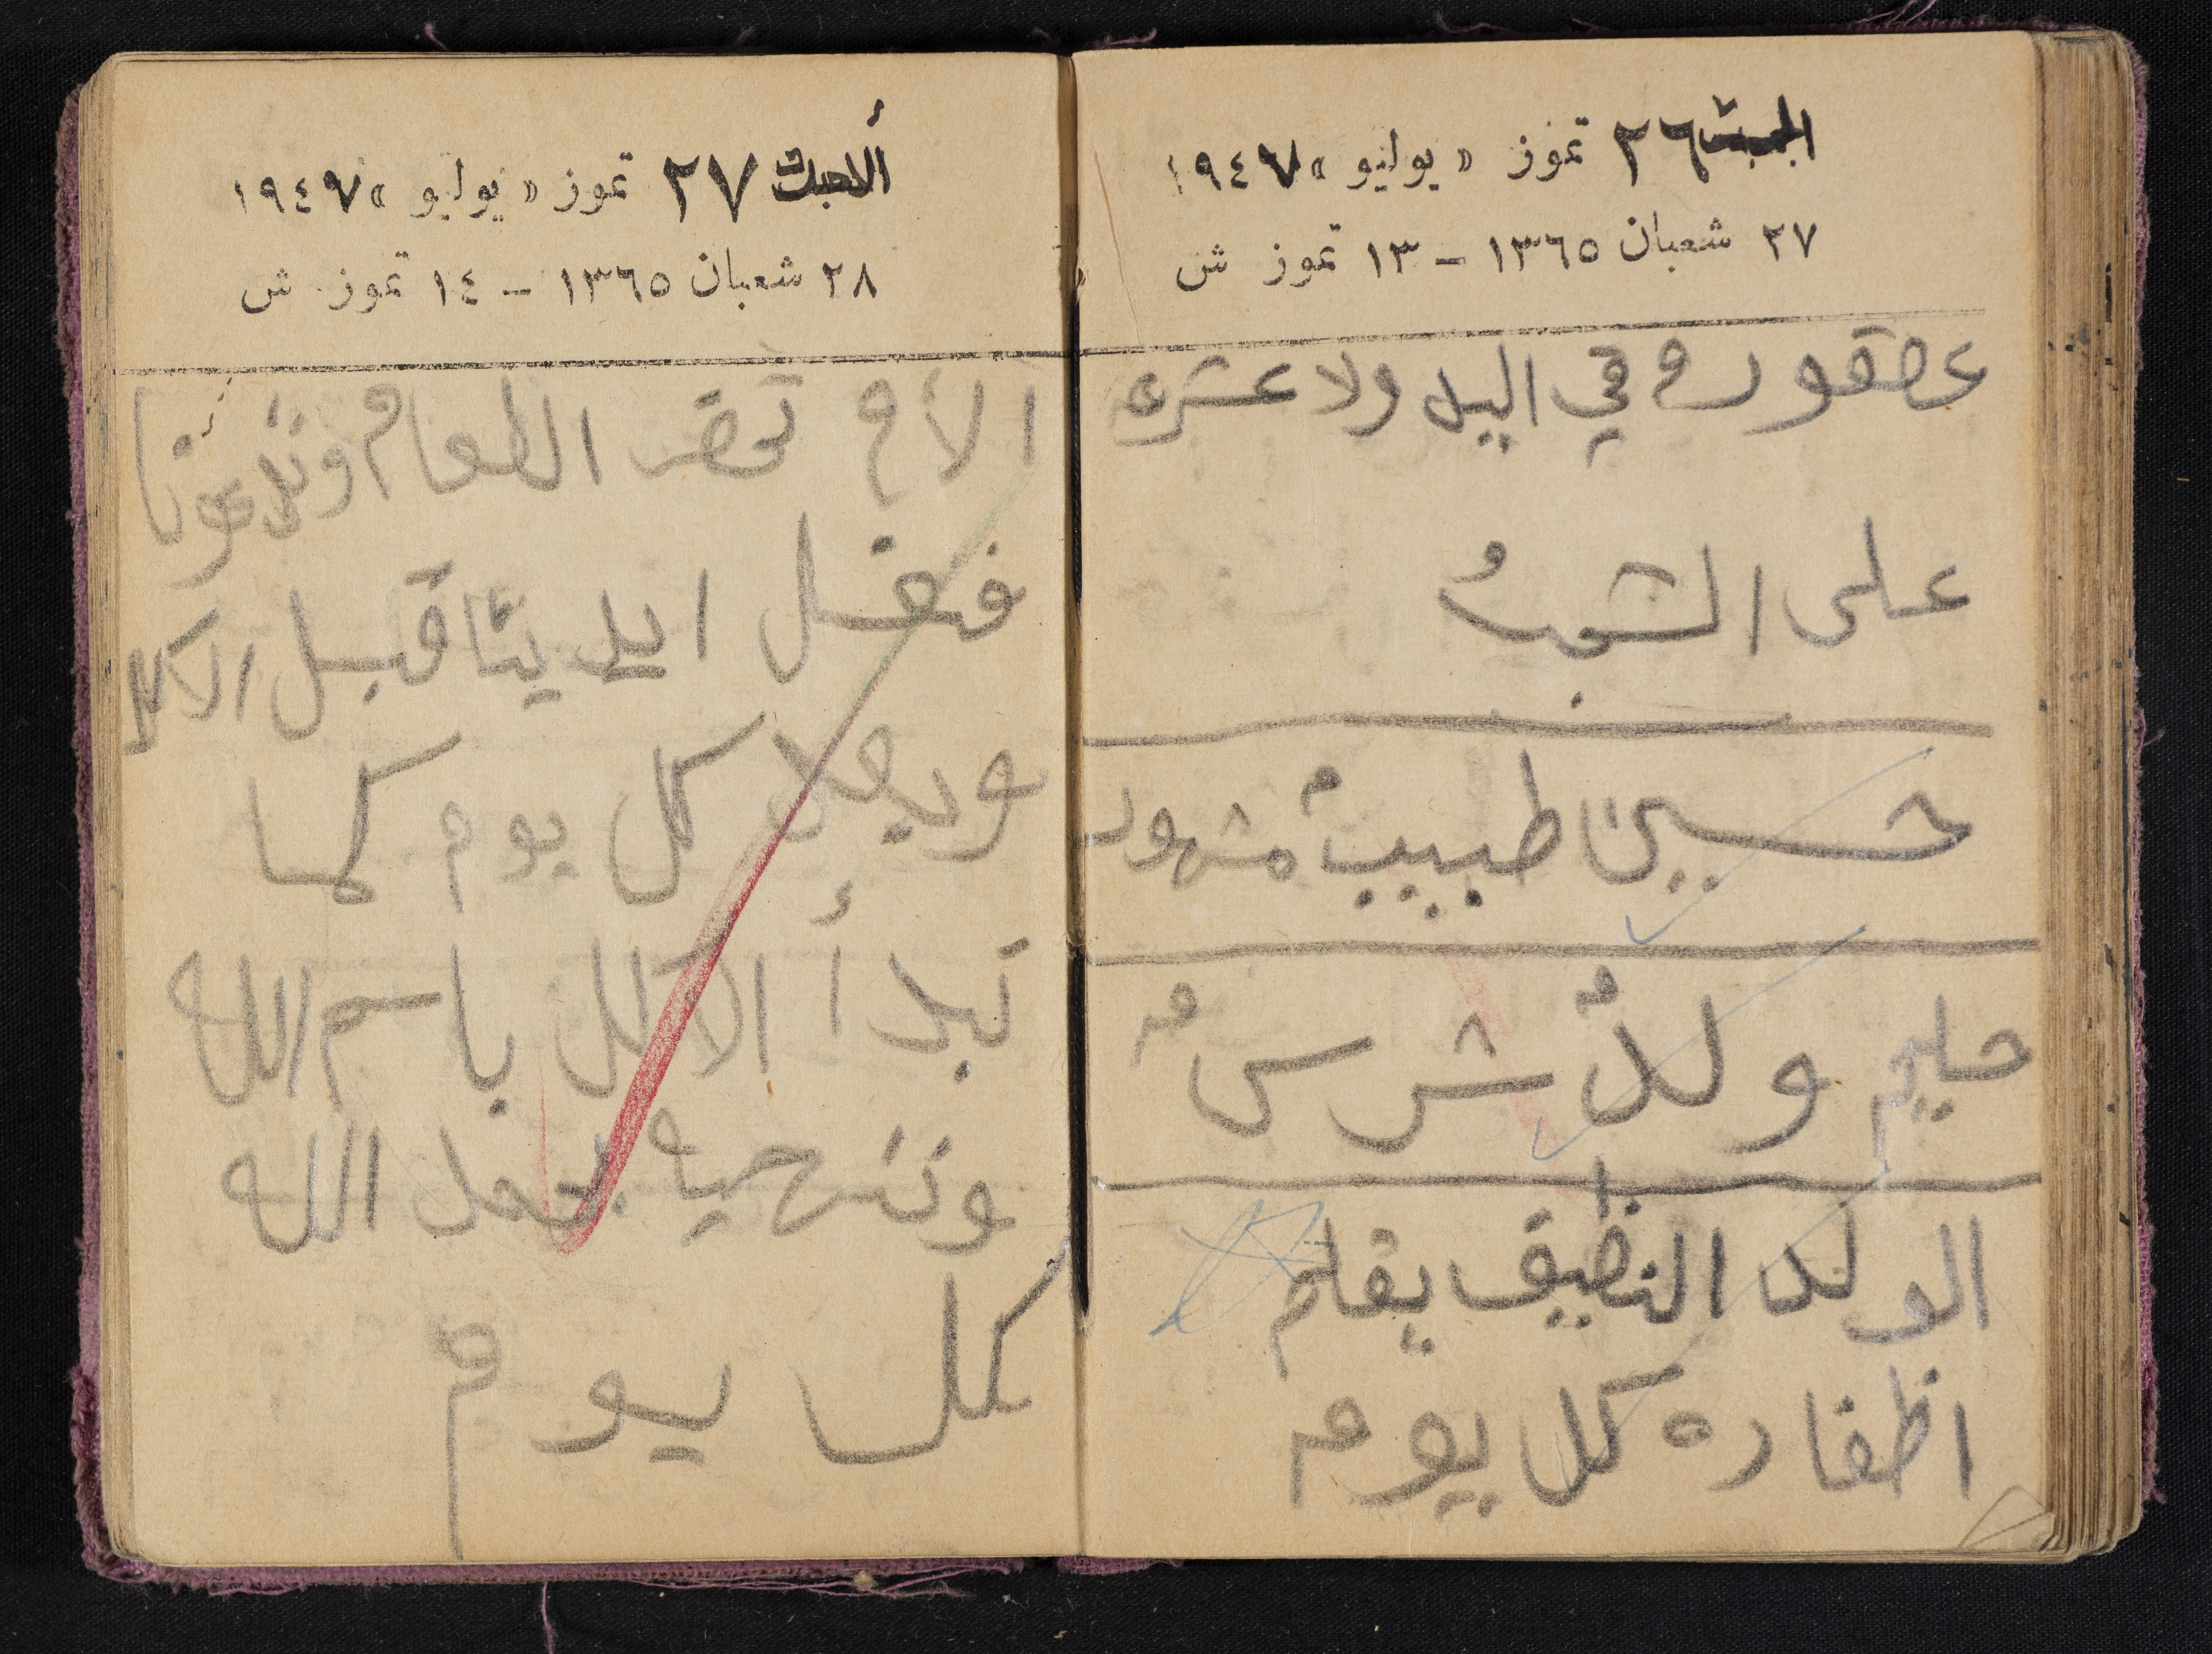 ٢٦ تموز «يوليو» ١٩٤٧
٢٧ شعبان ١٣٦٥ – ١٣ تموز ش
عصفوره في اليل ولا عشره
على الشجره
حسين طبيب مشهور
حليم ولد شرس
الولد النظيف يقلم
اظفاره كل يوم
٢٧ تموز «يوليو» ١٩٤٧
٢٨ شعبان ١٣٦٥ – ١٤ تموز ش
الأم تحضر الطعام وتدعونا
فنغسل ايدينا قبل الاكل
كل يوم كما
نبدأ الأكل باسم الله
وننهيه بحمد الله
كل يوم